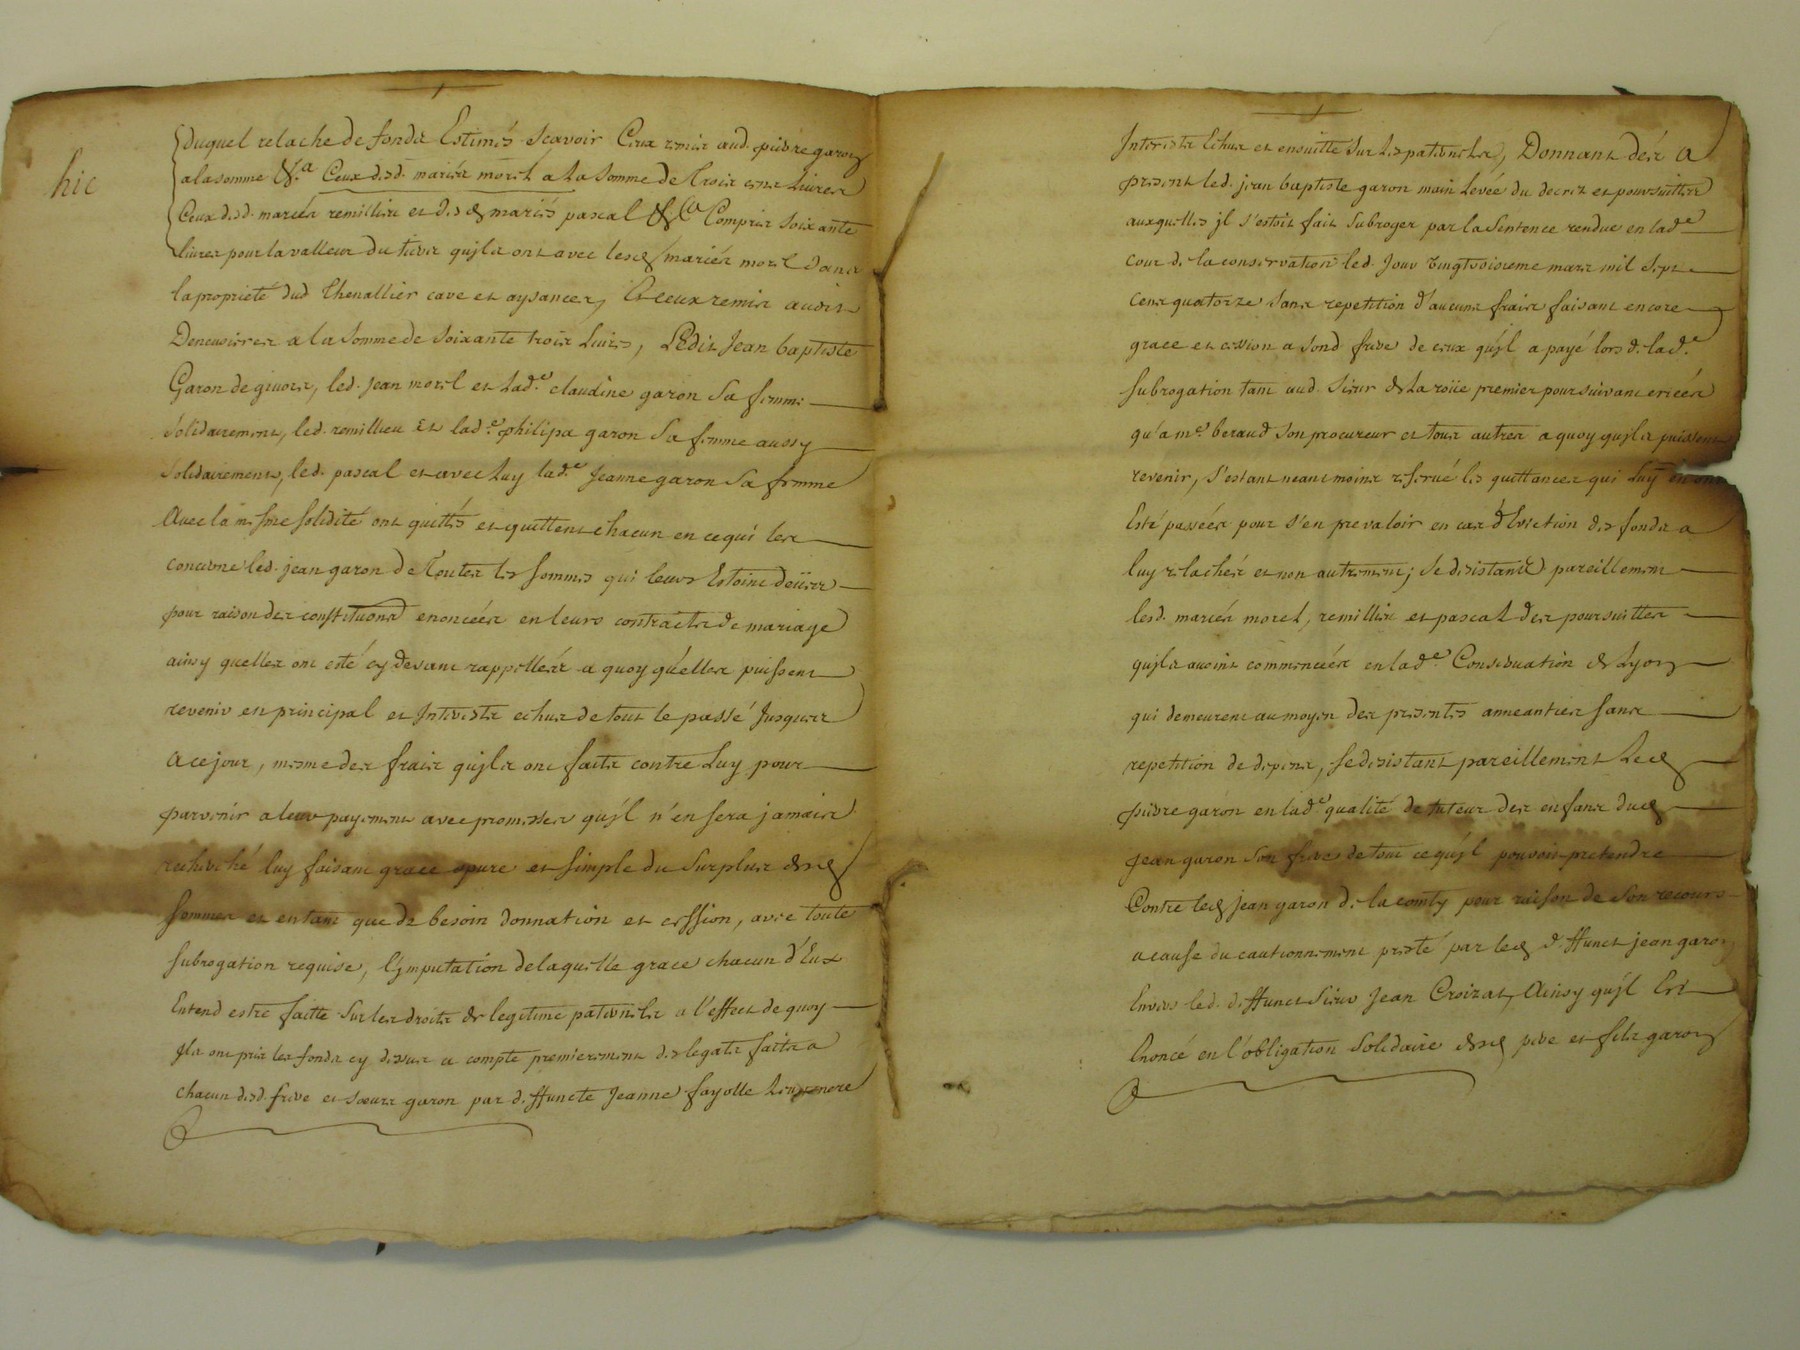 hic
Duquel relache de fonds Estimés Scavoir Ceux remis aud. pierre garon
a la somme &.a Ceux desd. mariés morel a La Somme de Trois cens Livres
Ceux desd. mariés remillieu et desd mariés pascal &Ca Compris Soixante
livres pour la valleur du qu'jls ont avec lesd mariés morel dans
la proprieté dud Chenallier cave et aysances, Et ceux remis audit
Deneusieres a la Somme de Soixante trois Livres, LEdit Jean baptiste
Garon de givors, led. Jean morel et Lad.e claudine garon Sa femme
Solidairement, led. remillieu Et lad.e philipa garon Sa femme aussy
Solidairement, led. pascal et avec Luy lad.e Jeanne garon Sa femme
Avec la mesme solidité ont quittés et quittent chacun en ce qui les
concerne led. jean garon de Toutes les sommes qui leurs Estoint deües
pour raison des constitutions enoncées en leurs contracts de mariage
ainsy quelles ont esté cy devant rappellées a quoy qu'elles puissent
revenir en principal et Interests echus de tout le passé Jusques
a ce jour, mesme des frais qu'jls ont faits contre Luy pour
parvenir a leur payement avec promesses qu'jl n'en sera jamais
recherché luy faisant grace pure et simple du Surplus desd
sommes et en tant que de besoin donnation et cession, avec toute
subrogation requise, l'jmputation de laquelle grace chacun d'Eux
Entend estre faitte Sur les droits de legitime paternels a l'effect de quoy
Jls ont pris les fonds cy dessus a compte premierement des legats faits a
chacun desd. freres et soeurs garon par deffuncte Jeanne fayolle Leur mere
Interests Echus et ensuitte Sur Les paternels, Donnant dés a
present led. jean baptiste garon main Levée du decret et poursuittes
auxquelles jl s'estoit fait Subroger par la Sentence rendue en lad.e
cour de la conservation led. Jour vingt troisieme mars mil Sept
cens quatorze Sans repetition d'aucuns frais faisant encore
grace et cession a Sond frere de ceux qu'jl a payé lors de lad.e
subrogation tant aud. Sieur de La roüe premier poursuivant criées
qu'a me. beraud Son procureur et tous autres a quoy qu'jls puissent
revenir, S'estant neantmoins reservé les quittances qui Luy en ont
Esté passées pour s'en prevaloir en cas d'Eviction des fonds a
luy relachés et non autrement; Se desistants pareillement
lesd. mariés morel, remillieu et pascal des poursuittes
qu'jls avoint commencées en lad.e Conservation de Lyon
qui demeurent au moyen des presentes anneanties sans
repetition de depens, se desistant pareillement Led
pierre garon en lad.e qualité de tuteur des enfans dud
jean garon Son frere de tout ce qu'jl pouvoit pretendre
Contre led jean garon de la comty pour raison de Son recours
a cause du cautionnement presté par led deffunct jean garon
Envers led. deffunct Sieur Jean Croizat, Ainsy qu'jl Est
Enoncé en l'obligation Solidaire desd pere et fils garon